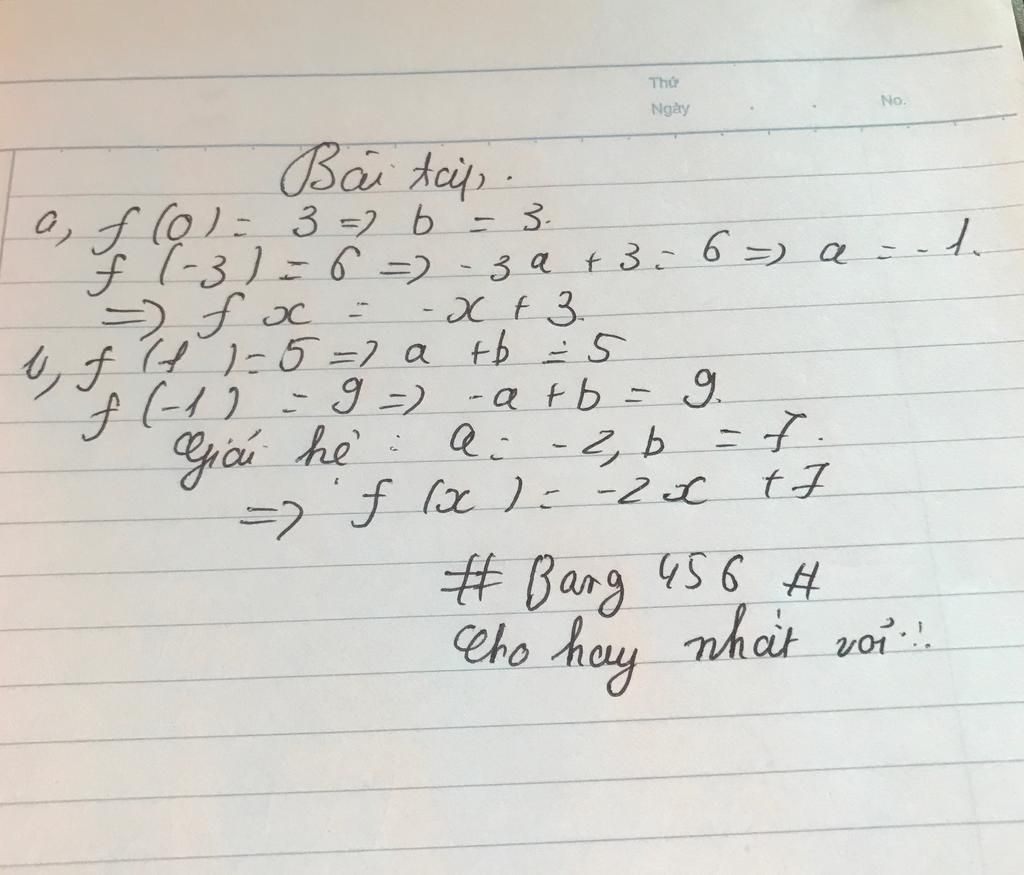 Thứ
Ngày . . No.
Bài tập.
a, f(0) = 3 => b = 3.
f(-3) = 6 => -3a + 3 = 6 => a = -1.
=> f x = -x + 3.
b, f(1) = 5 => a + b = 5
f(-1) = 9 => -a + b = 9.
Giải hệ : a = -2, b = 7.
=> f(x) = -2x + 7
# Bang 456 #
Cho hay nhất với